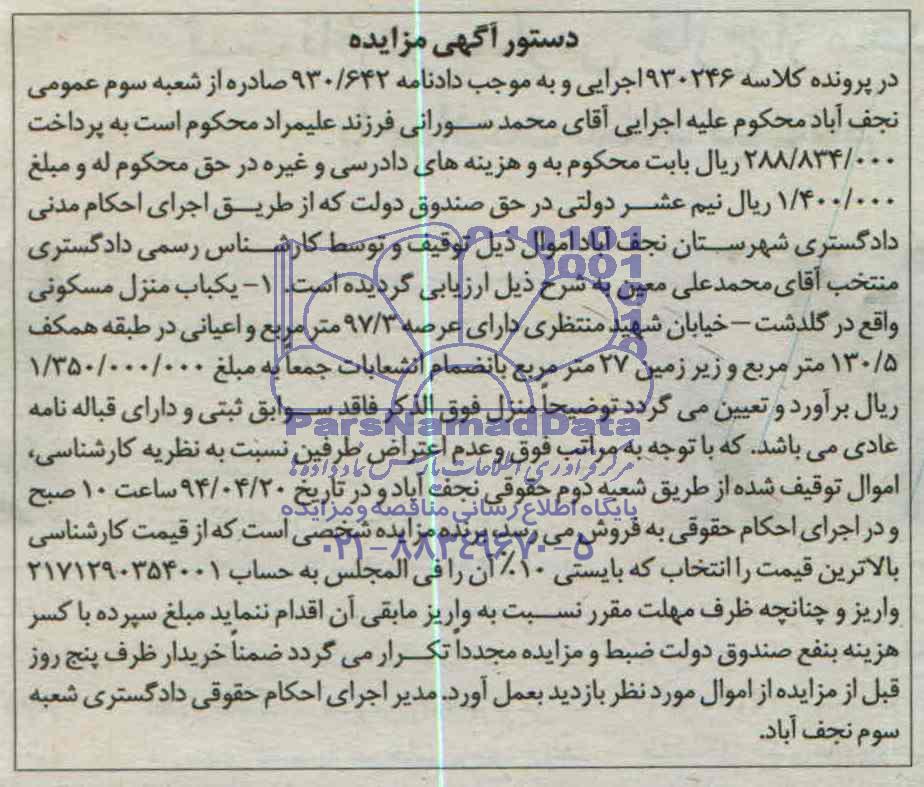 دستور آگهی مزایده
در پرونده کلاسه ۹۳۰۲۴۶اجرایی و به موجب دادنامه ۹۳۰/۶۴۲ صادره از شعبه سوم عمومی
نجف آباد محکوم علیه اجرایی آقای محمد سورانی فرزند علیمراد محکوم است به پرداخت
۲۸۸/۸۳۴/۰۰۰ ریال بابت محکوم به و هزینه های دادرسی و غیره در حق محکوم له و مبلغ
۱/۴۰۰/۰۰۰ ریال نیم عشر دولتی در حق صندوق دولت که از طریق اجرای احکام مدنی
دادگستری شهرستان نجف آباد اموال ذیل توقیف و توسط کارشناس رسمی دادگستری
منتخب آقای محمدعلی معین به شرح ذیل ارزیابی گردیده است. ۱- یکباب منزل مسکونی
واقع در گلدشت – خیابان شهید منتظری دارای عرصه ۹۷/۳ متر مربع و اعیانی در طبقه همکف
۱۳۰/۵ متر مربع و زیر زمین ۲۷ متر مربع بانضمام انشعابات جمعاً به مبلغ ۱/۳۵۰/۰۰۰/۰۰۰
ریال برآورد و تعیین می گردد توضیحاً منزل فوق الذکر فاقد سوابق ثبتی و دارای قباله نامه
ParsNamadData
عادی می باشد. که با توجه به مراتب فوق وعدم اعتراض طرفین نسبت به نظریه کارشناسی،
مرکز فرآوری اطلاعات پارس نماد داده ها
اموال توقیف شده از طریق شعبه دوم حقوقی نجف آباد و در تاریخ ۹۴/۰۴/۲۰ ساعت ۱۰ صبح
پایگاه اطلاع رسانی مناقصه و مزایده
و در اجرای احکام حقوقی به فروش می رسد، برنده مزایده شخصی است که از قیمت کارشناسی
۰۲۱-۸۸۳۴۹۶۷۰-۵
بالاترین قیمت را انتخاب که بایستی ۱۰٪ آن را فی المجلس به حساب ۲۱۷۱۲۹۰۳۵۴۰۰۱
واریز و چنانچه ظرف مهلت مقرر نسبت به واریز مابقی آن اقدام ننماید مبلغ سپرده با کسر
هزینه بنفع صندوق دولت ضبط و مزایده مجدداً تکرار می گردد ضمناً خریدار ظرف پنج روز
قبل از مزایده از اموال مورد نظر بازدید بعمل آورد. مدیر اجرای احکام حقوقی دادگستری شعبه
سوم نجف آباد.